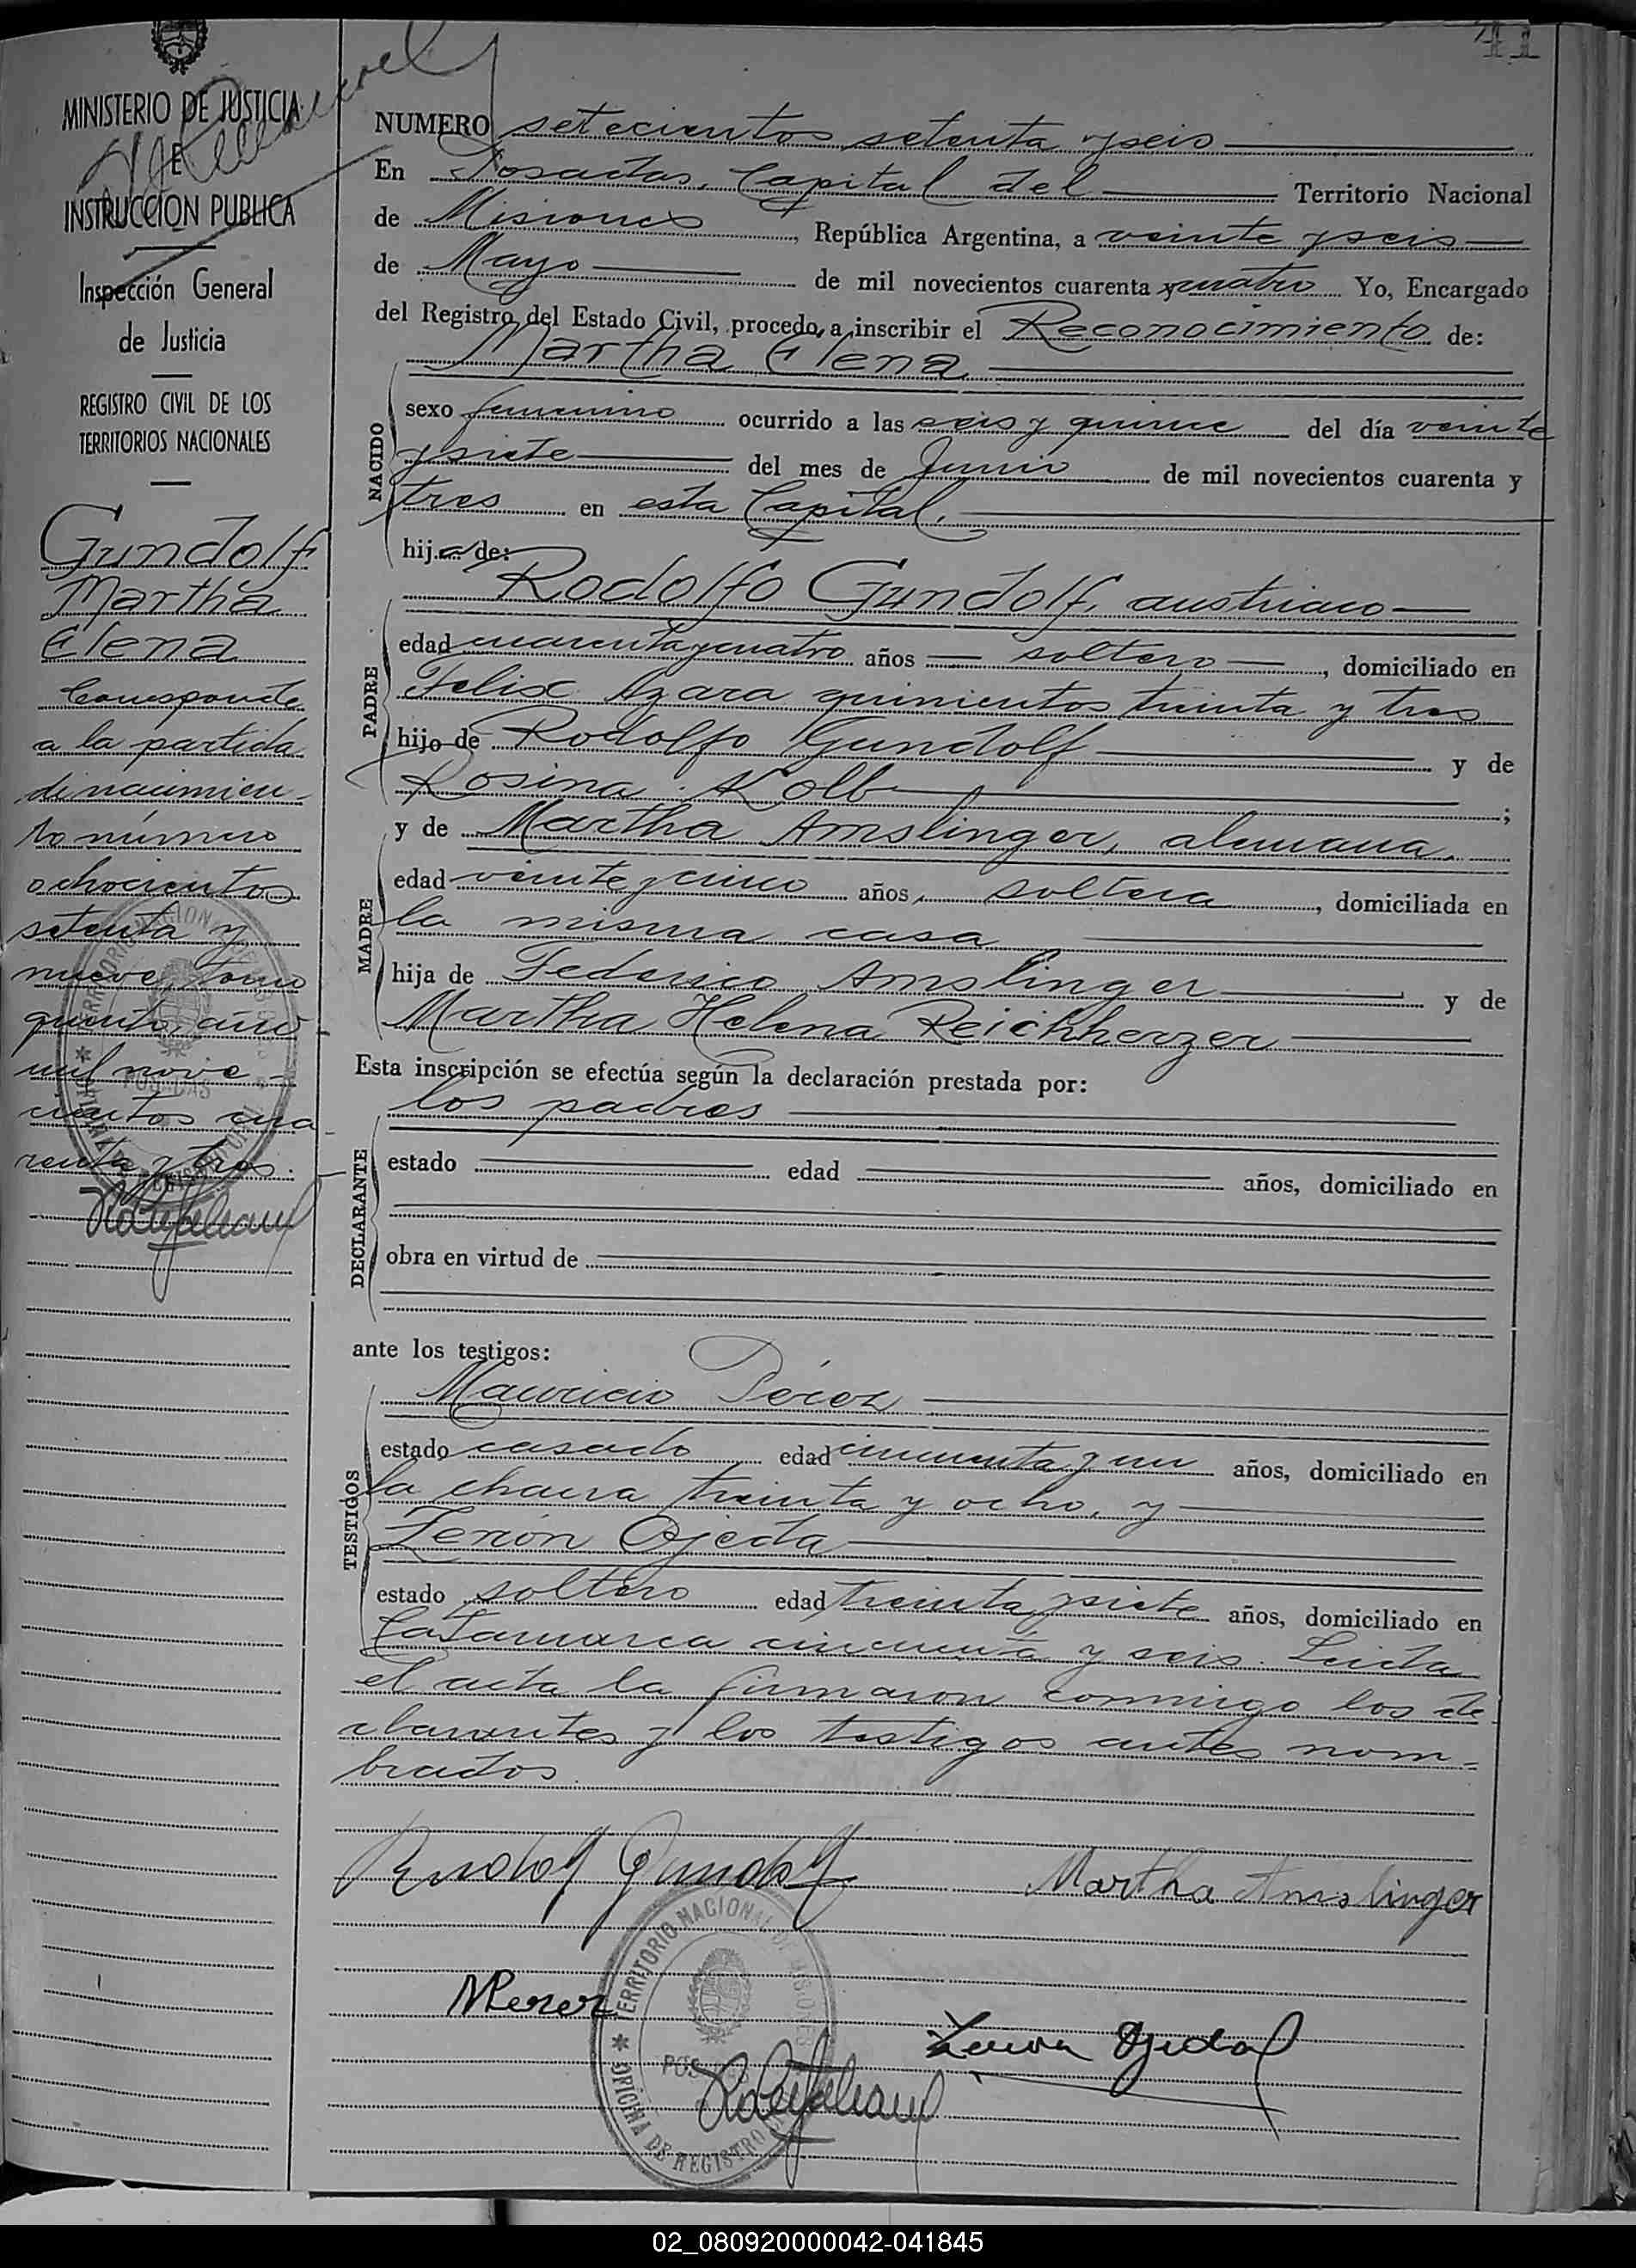 41
MINISTERIO DE JUSTICIA
E
INSTRUCCION PUBLICA
Inspección General
de Justicia
REGISTRO CIVIL DE LOS
TERRITORIOS NACIONALES
Gundolf
Martha
Elena
Corresponde
a la partida
de nacimien-
to número
ochocientos
setenta y
nueve, tomo
quinto, año
mil nove-
cientos cua-
renta y tres.
NUMERO setecientos setenta y seis
En Posadas, Capital del Territorio Nacional
de Misiones, República Argentina, a veinte y seis
de Mayo de mil novecientos cuarenta y cuatro Yo, Encargado
del Registro del Estado Civil, procedo a inscribir el Reconocimiento de:
Martha Elena
NACIDO
sexo femenino ocurrido a las seis y quince del día veinte
y siete del mes de Junio de mil novecientos cuarenta y
tres en esta Capital.
hija de:
PADRE
Rodolfo Gundolf, austriaco
edad cuarenta y cuatro años soltero, domiciliado en
Felix Azara quinientos treinta y tres
hijo de Rodolfo Gundolf y de
Rosina Kolb;
MADRE
y de Martha Amslinger, alemana.
edad veinte y cinco años, soltera, domiciliada en
la misma casa
hija de Federico Amslinger y de
Martha Helena Reichherzer
Esta inscripción se efectúa según la declaración prestada por:
DECLARANTE
los padres
estado edad años, domiciliado en
obra en virtud de
ante los testigos:
TESTIGOS
Mauricio Pérez
estado casado edad cincuenta y un años, domiciliado en
la chacra treinta y ocho, y
Zenón Ojeda
estado soltero edad treinta y siete años, domiciliado en
Catamarca cincuenta y seis. Leida
el acta la firmaron conmigo los de
clarantes y los testigos antes nom-
brados
Rudolf Gundolf
Martha Amslinger
MPerez
Zenon Ojeda
TERRITORIO NACIONAL DE MISIONES
POSADAS
OFICINA DE REGISTRO
02_080920000042-041845